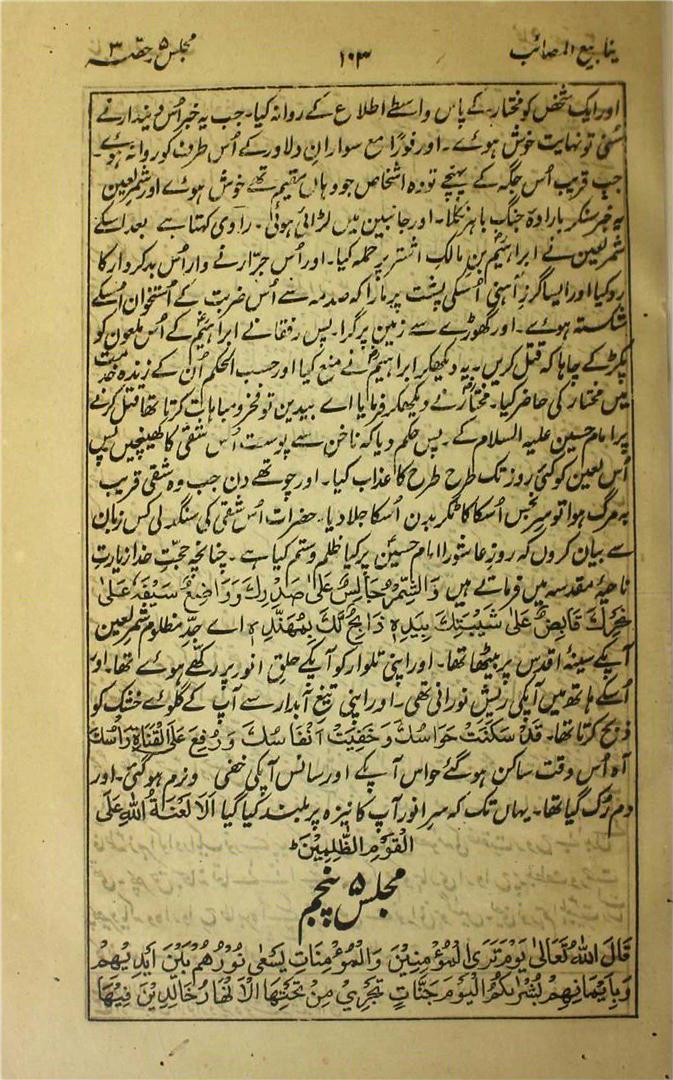 ینابیع المصائب
۱۰۳
مجلس ۵ حصہ ۳
اور ایک شخص کو مختار کے پاس واسطے اطلاع کے روانہ کیا۔ جب یہ خبر اُس دیندار نے
سُنی تو نہایت خوش ہوئے۔ اور فوراً مع سواران دلاور کے اُس طرف کو روانہ ہوئے۔
جب قریب اُس جگہ کے پہنچے تو وہ اشخاص جو وہاں مقیم تھے خوش ہوئے اور شمر لعین
یہ خبر سنکر بارادۂ جنگ باہر نکلا۔ اور جانبین میں لڑائی ہوئی۔ راوی کہتا ہے بعد اسکے
شمر لعین نے ابراہیمؑ بن مالک اشتر پر حملہ کیا۔ اور اُس جرّار نے وار اُس بدکردار کا
روکیا اور ایسا گرز آہنی اُسکی پشت پر مارا کہ صدمہ سے اُس ضربت کے اُستخوان اُسکے
شکستہ ہوئے۔ اور گھوڑے سے زمین پر گرا۔ پس رفقا نے ابراہیمؑ کے اُس ملعون کو
پکڑ کے چاہا کہ قتل کریں۔ یہ دیکھکر ابراہیمؑ نے منع کیا اور حسب الحکم اُن کے زندہ خدمت
میں مختار کی حاضر کیا۔ مختارؑ نے دیکھکر فرمایا اے بیدین تو فخر و مباہات کرتا تھا قتل کرنے
پر امام حسین علیہ السلام کے۔ پس حکم دیا کہ ناخن سے پوست اُس شقی کا کھینچیں پس
اُس لعین کو کئی روز تک طرح طرح کا عذاب کیا۔ اور چوتھے دن جب وہ شقی قریب
بہ مرگ ہوا تو سر نجس اُسکا کاٹکر بدن اُسکا جلا دیا۔ حضرات اُس شقی کی سنگدلی کس زبان
سے بیان کروں کہ روز عاشورا امام حسینؑ پر کیا ظلم و ستم کیا ہے۔ چنانچہ حجتِ خدا زیارت
ناحیۂ مقدسہ میں فرماتے ہیں وَالشِّمْرُ جَالِسٌ عَلٰی صَدْرِكَ وَوَاضِعٌ سَیْفَهٗ عَلٰی
نَحْرِكَ قَابِضٌ عَلٰی شَیْبَتِكَ بِیَدِهٖ ذَابِحٌ لَكَ بِمُهَنَّدِهٖ اے جدِّ مظلوم شمر لعین
آپکے سینۂ اقدس پر بیٹھا تھا۔ اور اپنی تلوار کو آپکے حلق انور پر رکھے ہوئے تھا۔ اور
اُسکے ہاتھ میں آپکی ریش نورانی تھی۔ اور اپنی تیغ آبدار سے آپ کے گلوئے خشک کو
ذبح کرتا تھا۔ قَدْ سَكَنَتْ حَوَاسُّكَ وَخَفِیَتْ اَنْفَاسُكَ وَرُفِعَ عَلَی الْقَنَاةِ رَاْسُكَ
آہ اُس وقت ساکن ہو گئے حواس آپکے اور سانس آپکی خفی و نرم ہو گئی۔ اور
دم رُک گیا تھا۔ یہاں تک کہ سرِ انور آپ کا نیزہ پر بلند کیا گیا اَلَا لَعْنَةُ اللّٰهِ عَلَی
الْقَوْمِ الظّٰلِمِیْنَ
مجلس ۵ پنجم
قَالَ اللّٰهُ تَعَالٰی یَوْمَ تَرَی الْمُؤْمِنِیْنَ وَالْمُؤْمِنَاتِ یَسْعٰی نُوْرُهُمْ بَیْنَ اَیْدِیْهِمْ
وَبِاَیْمَانِهِمْ بُشْرٰىكُمُ الْیَوْمَ جَنَّاتٌ تَجْرِیْ مِنْ تَحْتِهَا الْاَنْهَارُ خَالِدِیْنَ فِیْهَا